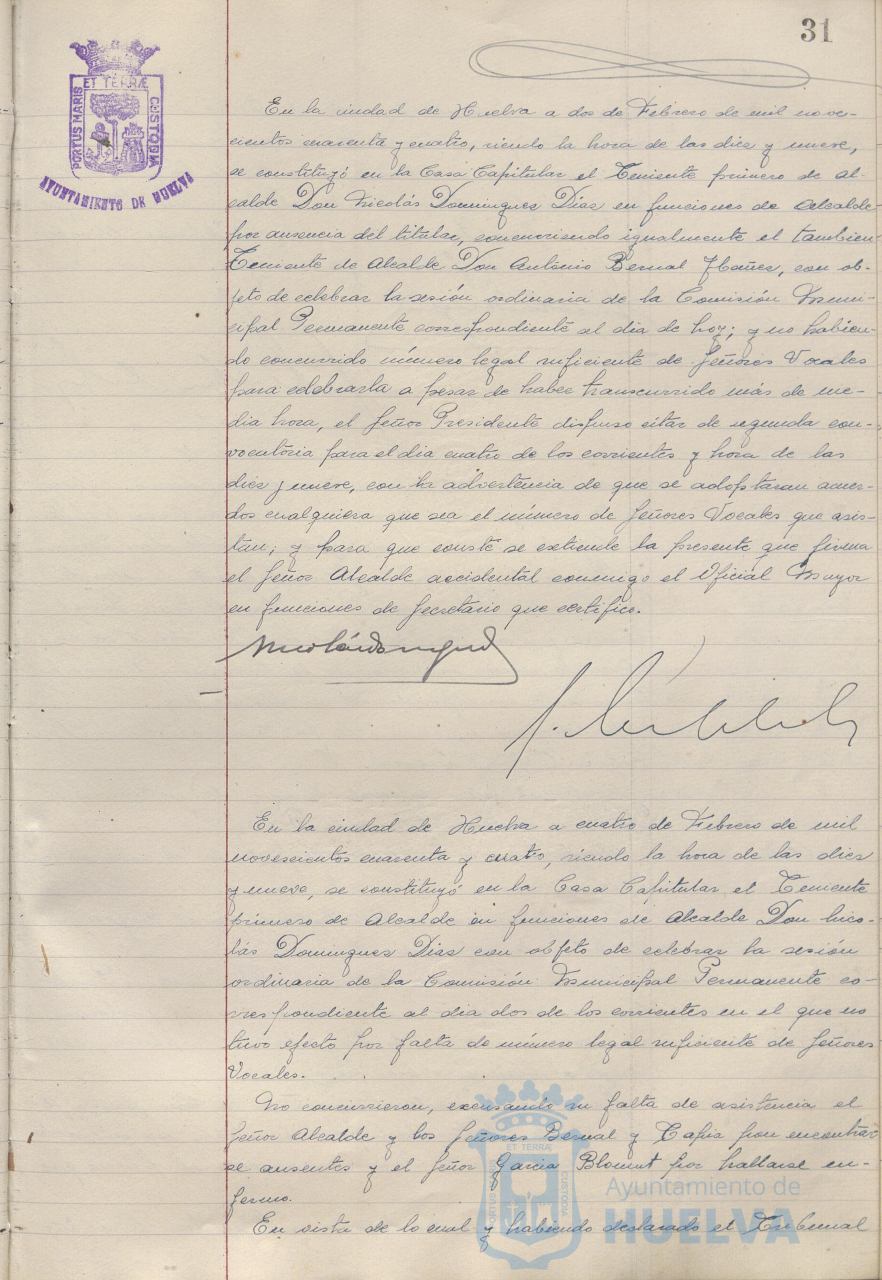 31
PORTUS MARIS ET TERRÆ CUSTODIA
AYUNTAMIENTO DE HUELVA
En la ciudad de Huelva a dos de Febrero de mil nove-
cientos cuarenta y cuatro, siendo la hora de las diez y nueve,
se constituyó en la Casa Capitular el Teniente primero de Al-
calde Don Nicolás Dominguez Dias en funciones de Alcalde
por ausencia del titular, concurriendo igualmente el tambien
Teniente de Alcalde Don Antonio Bernal Ybañez, con ob-
jeto de celebrar la sesión ordinaria de la Comisión Muni-
cipal Permanente correspondiente al dia de hoy; y no habien-
do concurrido número legal suficiente de Señores Vocales
para celebrarla a pesar de haber transcurrido más de me-
dia hora, el Señor Presidente dispuso citar de segunda con-
vocatoria para el dia cuatro de los corrientes y hora de las
diez y nueve, con la advertencia de que se adoptaran acuer-
dos cualquiera que sea el número de Señores Vocales que asis-
tan; y para que conste se extiende la presente que firma
el Señor Alcalde accidental conmigo el Oficial Mayor
en funciones de Secretario que certifico.
En la ciudad de Huelva a cuatro de Febrero de mil
novescientos cuarenta y cuatro, siendo la hora de las diez
y nueve, se constituyó en la Casa Capitular el Teniente
primero de Alcalde en funciones de Alcalde Don Nico-
lás Dominguez Dias con objeto de celebrar la sesión
ordinaria de la Comisión Municipal Permanente co-
rrespondiente al dia dos de los corrientes en el que no
tuvo efecto por falta de número legal suficiente de Señores
Vocales.
No concurrieron, excusando su falta de asistencia el
Señor Alcalde y los Señores Bernal y Tapia por encontrar
se ausentes y el Señor Garcia Blomut por hallarse en-
fermo.
En vista de lo cual y habiendo declarado el Tribunal
PORTUS MARIS ET TERRÆ CUSTODIA
Ayuntamiento de
HUELVA